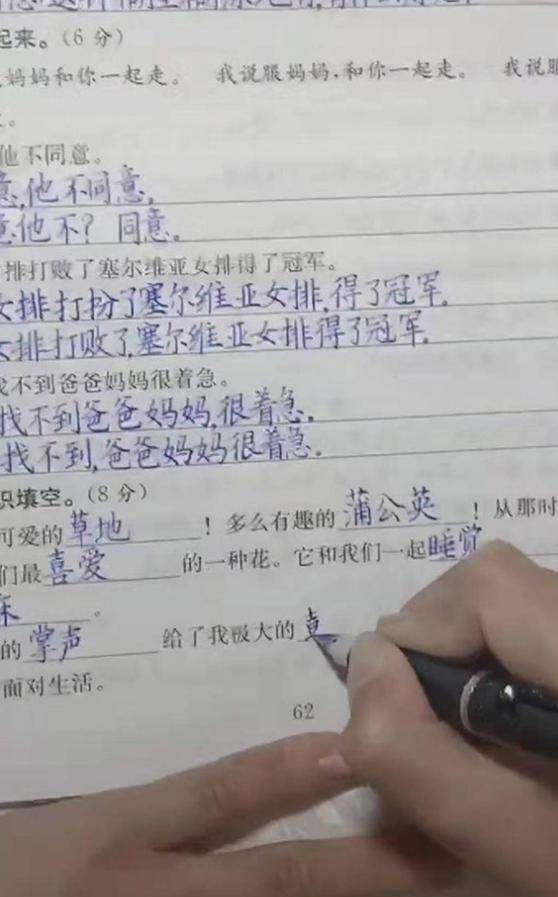 起来。(6分)
妈妈和你一起走。 我说服妈妈,和你一起走。 我说服
他不同意。
意,他不同意。
意他不? 同意。
排打败了塞尔维亚女排得了冠军。
女排打扮了塞尔维亚女排,得了冠军。
女排打败了,塞尔维亚女排得了冠军。
找不到爸爸妈妈很着急。
找不到爸爸妈妈,很着急。
找不到,爸爸妈妈很着急。
识填空。(8分)
可爱的草地!多么有趣的蒲公英!从那时
们最喜爱的一种花。它和我们一起睡觉
的掌声给了我极大的
面对生活。
62